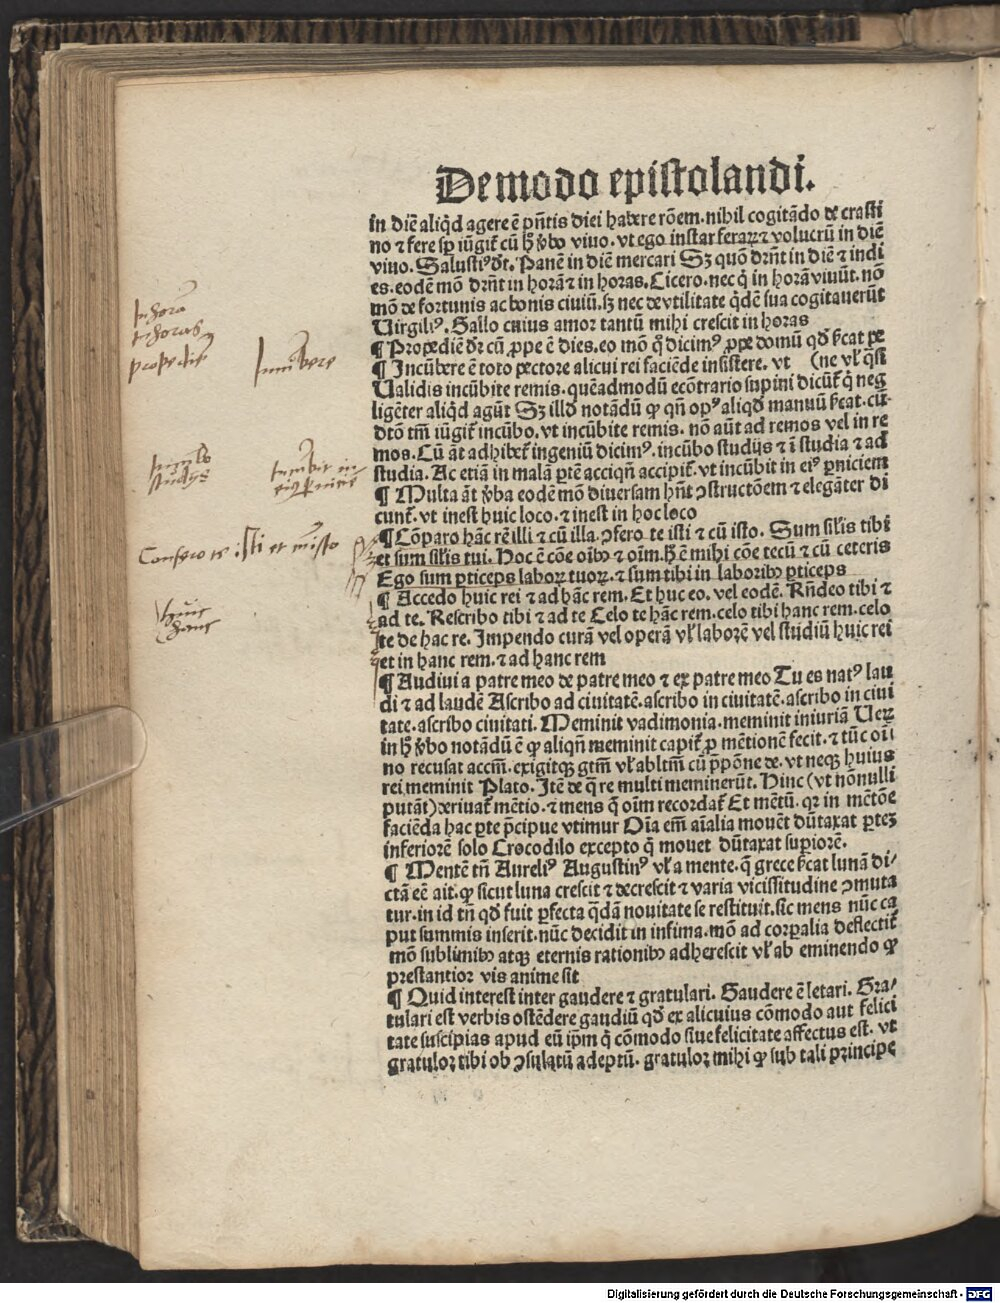 De modo epistolandi.
in diē aliqd̄ agere ē pn̄tis diei habere rōem. nihil cogitādo de crasti
no ⁊ fere sꝑ iūgit̄ cū h̄ v̄bo viuo. vt ego instar feraꝝ ⁊ volucrū in diē
viuo. Salustiꝰ dr̄t. Panē in diē mercari Sꝫ quō dr̄nt in diē ⁊ indi
es. eodē mō dr̄nt in horā ⁊ in horas. Cicero. nec q̄ in horā viuūt. nō
mō de fortunis ac bonis ciuiū. sꝫ nec de vtilitate q̄dē sua cogitauerūt
Virgiliꝰ. Gallo cuius amor tantū mihi crescit in horas
¶ Propediē dr̄ cū ꝓpe ē dies. eo mō q̄ dicimꝰ ꝓpe domū qd̄ s̄cat pe
¶ Incūbere ē toto pectore alicui rei faciēde insistere. vt (ne vl̄ q̄si
Ualidis incūbite remis. quēadmodū ecōtrario supini dicūt̄ q̄ neg
ligēter aliqd̄ agūt Sꝫ illd̄ notādū ꝙ qn̄ opꝰ aliqd̄ manuū s̄cat. cū
dtō tm̄ iūgit̄ incūbo. vt incūbite remis. nō aūt ad remos vel in re
mos. Cū āt adhibet̄ ingeniū dicimꝰ. incūbo studijs ⁊ ī studia ⁊ ad
studia. Ac etiā in malā ꝑtē acciqn̄ accipit̄. vt incūbit in eiꝰ ꝑniciem
¶ Multa āt v̄ba eodē mō diuersam hn̄t ꝯstructōem ⁊ elegāter di
cunt̄. vt inest huic loco. ⁊ inest in hoc loco
¶ Cōparo hāc rē illi ⁊ cū illa. ꝯfero te isti ⁊ cū isto. Sum sil̄is tibi
et sum sil̄is tui. Hoc ē cōe oīb⁹ ⁊ oīm. h̄ ē mihi cōe tecū ⁊ cū ceteris
Ego sum ꝑticeps laboꝝ tuoꝝ. ⁊ sum tibi in laborib⁹ ꝑticeps
¶ Accedo huic rei ⁊ ad hāc rem. Et huc eo. vel eodē. Rn̄deo tibi ⁊
ad te. Rescribo tibi ⁊ ad te Celo te hāc rem. celo tibi hanc rem. celo
te de hac re. Impendo curā vel operā vl̄ laborē vel studiū huic rei
et in hanc rem. ⁊ ad hanc rem
¶ Audiui a patre meo de patre meo ⁊ ex patre meo Tu es natꝰ lau
di ⁊ ad laudē Ascribo ad ciuitatē. ascribo in ciuitatē. ascribo in ciui
tate. ascribo ciuitati. Meminit vadimonia. meminit iniuriā Ueꝝ
in h̄ v̄bo notādū ē ꝙ aliqn̄ meminit capit̄ ꝓ mētionē fecit. ⁊ tūc oī
no recusat accm̄. exigitqꝫ gtm̄ vl̄ abltm̄ cū p̄pōne de. vt neqꝫ huius
rei meminit Plato. Itē de q̄ re multi meminerūt. Hinc (vt nōnulli
putāt) deriuat̄ mētio. ⁊ mens q̄ oīm recordat̄ Et mētū. qꝛ in mētōe
faciēda hac ꝑte p̄cipue vtimur Oīa em̄ aīalia mouēt dūtaxat ꝑteꝫ
inferiorē solo Crocodilo excepto q̄ mouet dūtaxat suꝑiorē.
¶ Mentē tn̄ Aureliꝰ Augustinꝰ vl̄ a mente. q̄ grece s̄cat lunā di/
ctā eē ait. ꝙ sicut luna crescit ⁊ decrescit ⁊ varia vicissitudine ꝯmuta
tur. in id tn̄ qd̄ fuit ꝑfecta q̄dā nouitate se restituit. sic mens nūc ca
put summis inserit. nūc decidit in infima. mō ad corꝑalia deflectit̄
mō sublimib⁹ atqꝫ eternis rationib⁹ adherescit vl̄ ab eminendo ꝙ
prestantior vis anime sit
¶ Quid interest inter gaudere ⁊ gratulari. Gaudere ē letari. Gra/
tulari est verbis ostēdere gaudiū qd̄ ex alicuius cōmodo aut felici
tate suscipias apud eū ip̄m q̄ cōmodo siue felicitate affectus est. vt
gratulor tibi ob ꝯsulatū adeptū. gratulor mihi ꝙ sub tali principe
In horā
in horas
propediē
Incūbere
Incūbo
studijs
incūbit in
eiꝰ ꝑniciē
Confero te isti et cū isto
huic
hanc
Digitalisierung gefördert durch die Deutsche Forschungsgemeinschaft - DFG